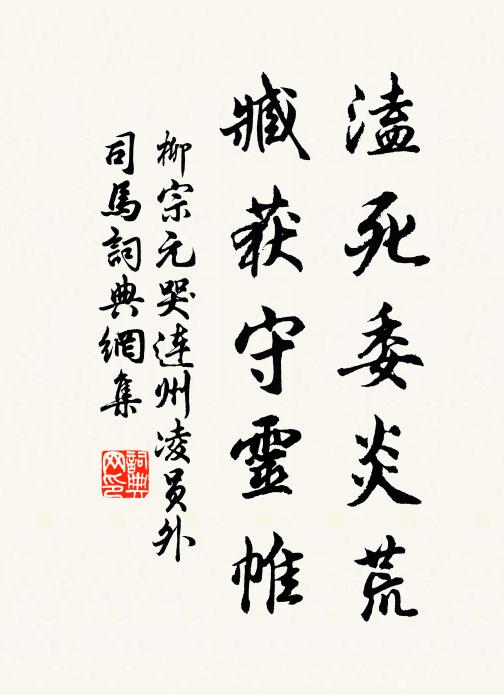 溘死委炎荒
臧获守靈帷
柳宗元哭连州凌员外
司馬詞典網集
詞典
网印